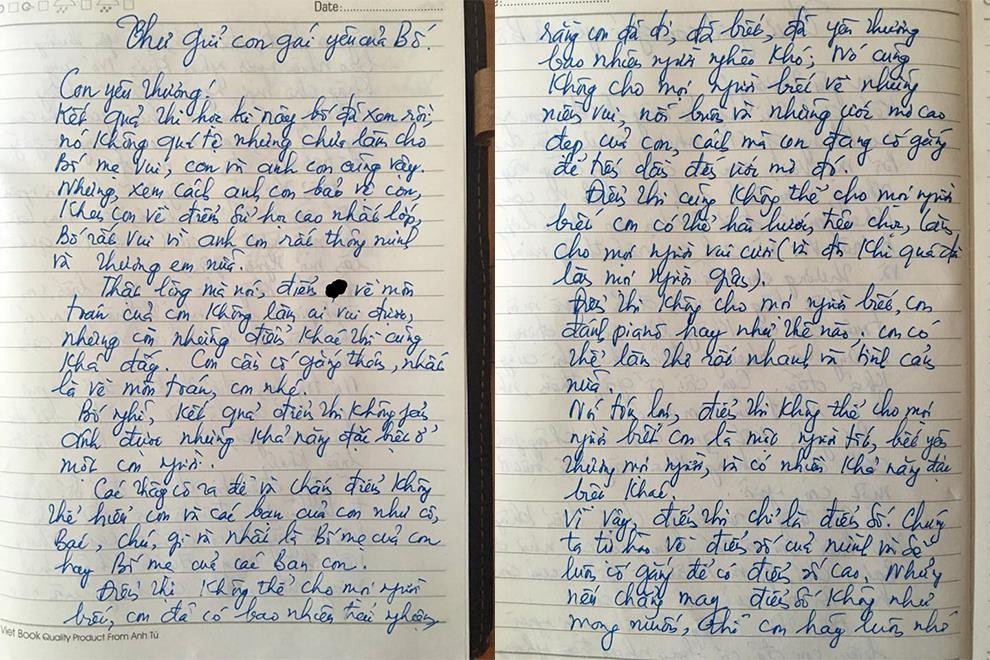 Date:
Thư gửi con gái yêu của Bố.
Con yêu thương!
Kết quả thi học kì này bố đã xem rồi,
nó không quá tệ nhưng chưa làm cho
Bố mẹ vui, con và anh con cũng vậy.
Nhưng, xem cách anh con bảo vệ con,
khen con về điểm Sử học cao nhất lớp,
Bố rất vui vì anh con rất thông minh
và thương em nữa.
Thật lòng mà nói, điểm về môn
toán của con không làm ai vui được,
nhưng còn những điểm khác thì cũng
khá đấy. Con cần cố gắng thêm, nhất
là về môn toán, con nhé.
Bố nghĩ, kết quả điểm thi không phản
ánh được những khả năng đặc biệt ở
một con người.
Các thầy cô ra đề và chấm điểm không
thể hiểu con và các bạn của con như cô,
bác, chú, gì và nhất là Bố mẹ của con
hay Bố mẹ của các bạn con.
Điểm thi không thể cho mọi người
biết, con đã có bao nhiêu trải nghiệm,
Viet Book Quality Product From Anh Tú
rằng con đã đi, đã biết, đã yêu thương
bao nhiêu người nghèo khó; Nó cũng
không cho mọi người biết về những
niềm vui, nỗi buồn và những ước mơ cao
đẹp của con, cách mà con đang cố gắng
để tiến dần đến ước mơ đó.
Điểm thi cũng không thể cho mọi người
biết con có thể hài hước, tếu chọc, làm
cho mọi người vui cười (và đôi khi quá đà
làm mọi người giận).
Điểm thi không cho mọi người biết, con
đánh pianô hay như thế nào, con có
thể làm thơ rất nhanh và tình cảm
nữa.
Nói tóm lại, điểm thi không thể cho mọi
người biết con là một người tốt, biết yêu
thương mọi người, và có nhiều khả năng đặc
biệt khác.
Vì vậy, điểm thi chỉ là điểm số. Chúng
ta tự hào về điểm số của mình và sẽ
luôn cố gắng để có điểm số cao. Nhưng
nếu chẳng may điểm số không như
mong muốn, thì con hãy luôn nhớ